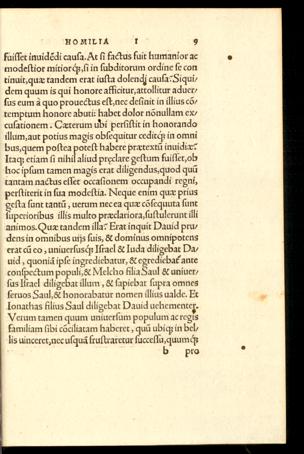 HOMILIA I 9
fuisset inuidēdi causa. At si factus fuit humanior ac
modestior mitiorq;, si in subditorum ordine se con
tinuit, quæ tandem erat iusta dolendi causa? Siqui-
dem quum is qui honore afficitur, attollitur aduer-
sus eum à quo prouectus est, nec desinit in illius cō-
temptum honore abuti: habet dolor nōnullam ex-
cusationem. Cæterum ubi persistit in honorando
illum, aut potius magis obsequitur cęditq; in omni
bus, quem postea potest habere prætextū inuidiæ?
Itaq; etiam si nihil aliud pręclare gestum fuisset, ob
hoc ipsum tamen magis erat diligendus, quod quū
tantam nactus esset occasionem occupandi regni,
perstiterit in sua modestia. Neque enim quæ prius
gesta sunt tantū, uerum nec ea quæ cōsequuta sunt
superioribus illis multo præclariora, sustulerunt illi
animos. Quæ tandem illa? Erat inquit Dauid pru-
dens in omnibus uijs suis, & dominus omnipotens
erat cū eo, uniuersusq; Israel & Iuda diligebat Da-
uid, quoniā ipse ingrediebatur, & egrediebat ante
conspectum populi, & Melcho filia Saul & uniuer-
sus Israel diligebat illum, & sapiebat supra omnes
seruos Saul, & honorabatur nomen illius ualde. Et
Ionathas filius Saul diligebat Dauid uehementer.
Verum tamen quum uniuersum populum ac regis
familiam sibi cōciliatam haberet, quū ubiq; in bel-
lis uinceret, nec usquā frustraretur successu, quum q;
b pro